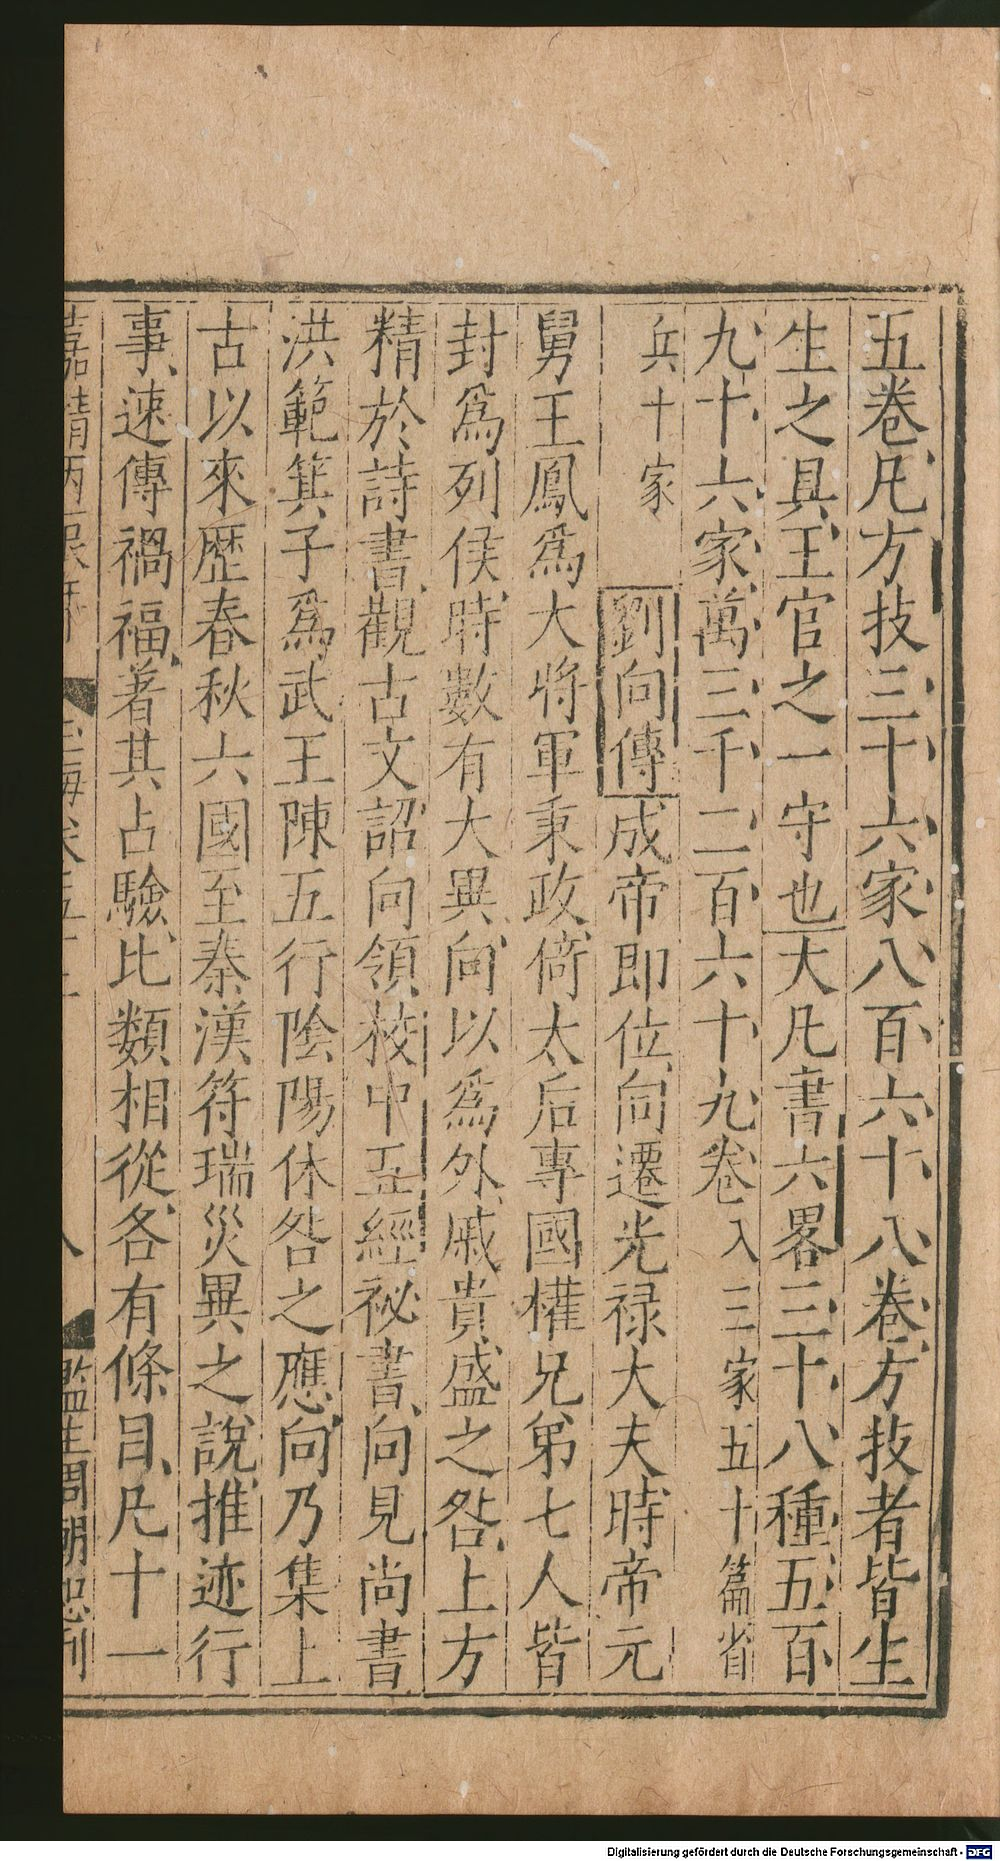 五卷凡方技三十六家八百六十八卷方技者皆生
生之具王官之一守也大凡書六畧三十八種五百
九十六家萬三千二百六十九卷入三家五十篇省
兵十家
劉向傳成帝即位向遷光禄大夫時帝元
舅王鳳爲大將軍秉政倚太后專國權兄弟七人皆
封爲列侯時數有大異向以爲外戚貴盛之咎上方
精於詩書觀古文詔向領校中五經祕書向見尚書
洪範箕子爲武王陳五行陰陽休咎之應向乃集上
古以來歴春秋六國至秦漢符瑞災異之說推迹行
事速傳禍福著其占驗比類相從各有條目凡十一
嘉靖丙辰 玉海卷五十二 八 監生周朝 刊
Digitalisierung gefördert durch die Deutsche Forschungsgemeinschaft - DFG